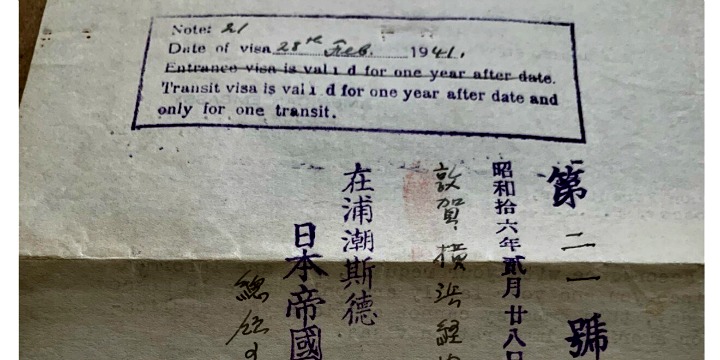 Note: 21
Date of visa 28th Feb. 1941.
Entrance visa is valid for one year after date.
Transit visa is valid for one year after date and
only for one transit.
第二一號
昭和拾六年貳月廿八日
敦賀横浜経
在浦潮斯德
日本帝國
總領